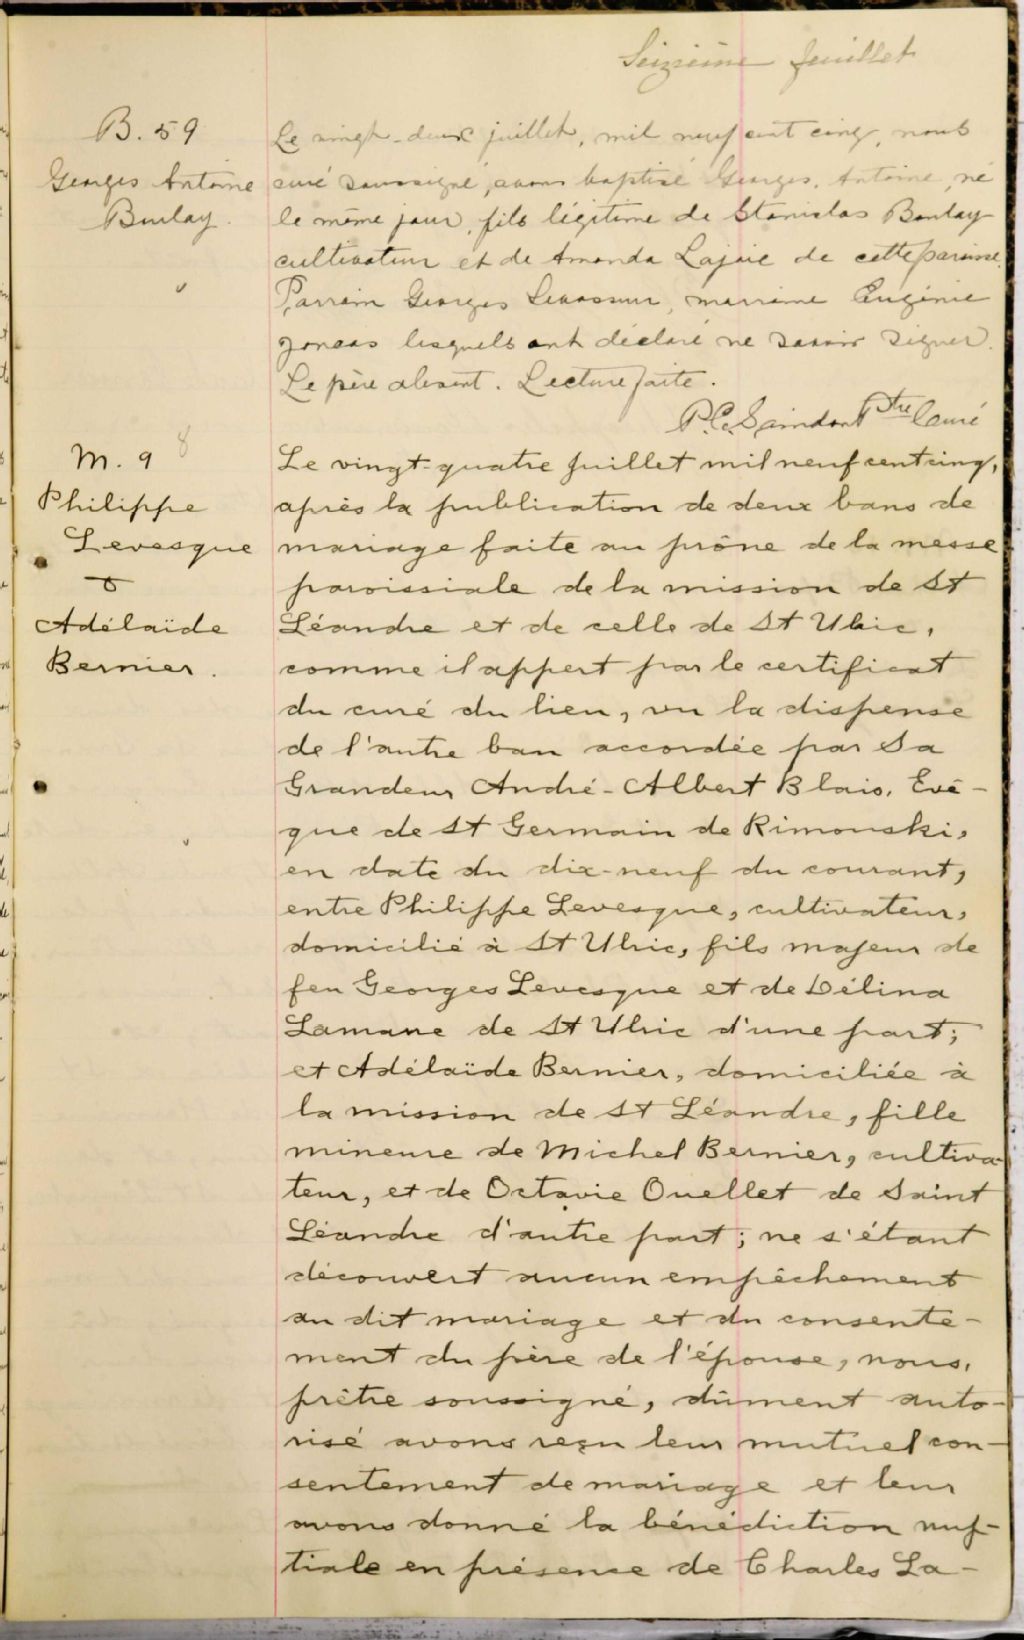 Seizième feuillet
B. 59
Georges Antoine
Boulay.
Le vingt-deux juillet, mil neuf cent cinq, nous
curé soussigné, avons baptisé Georges, Antoine, né
le même jour, fils légitime de Stanislas Boulay
cultivateur et de Amanda Lajoie de cette paroisse.
Parrain Georges Levasseur, marraine Eugénie
Joncas lesquels ont déclaré ne savoir signer.
Le père absent. Lecture faite.
P. C. Saindon Ptre Curé
M. 9 8
Philippe
Levesque
&
Adélaïde
Bernier.
Le vingt-quatre juillet mil neuf cent cinq,
après la publication de deux bans de
mariage faite au prône de la messe
paroissiale de la mission de St
Léandre et de celle de St Ulric,
comme il appert par le certificat
du curé du lieu, vu la dispense
de l'autre ban accordée par Sa
Grandeur André-Albert Blais, Evê-
que de St Germain de Rimouski,
en date du dix-neuf du courant,
entre Philippe Levesque, cultivateur,
domicilié à St Ulric, fils majeur de
feu Georges Levesque et de Délina
Lamarre de St Ulric d'une part;
et Adélaïde Bernier, domiciliée à
la mission de St Léandre, fille
mineure de Michel Bernier, cultiva-
teur, et de Octavie Ouellet de Saint
Léandre d'autre part; ne s'étant
découvert aucun empêchement
au dit mariage et du consente-
ment du père de l'épouse, nous,
prêtre soussigné, dûment auto-
risé avons reçu leur mutuel con-
sentement de mariage et leur
avons donné la bénédiction nup-
tiale en présence de Charles La-